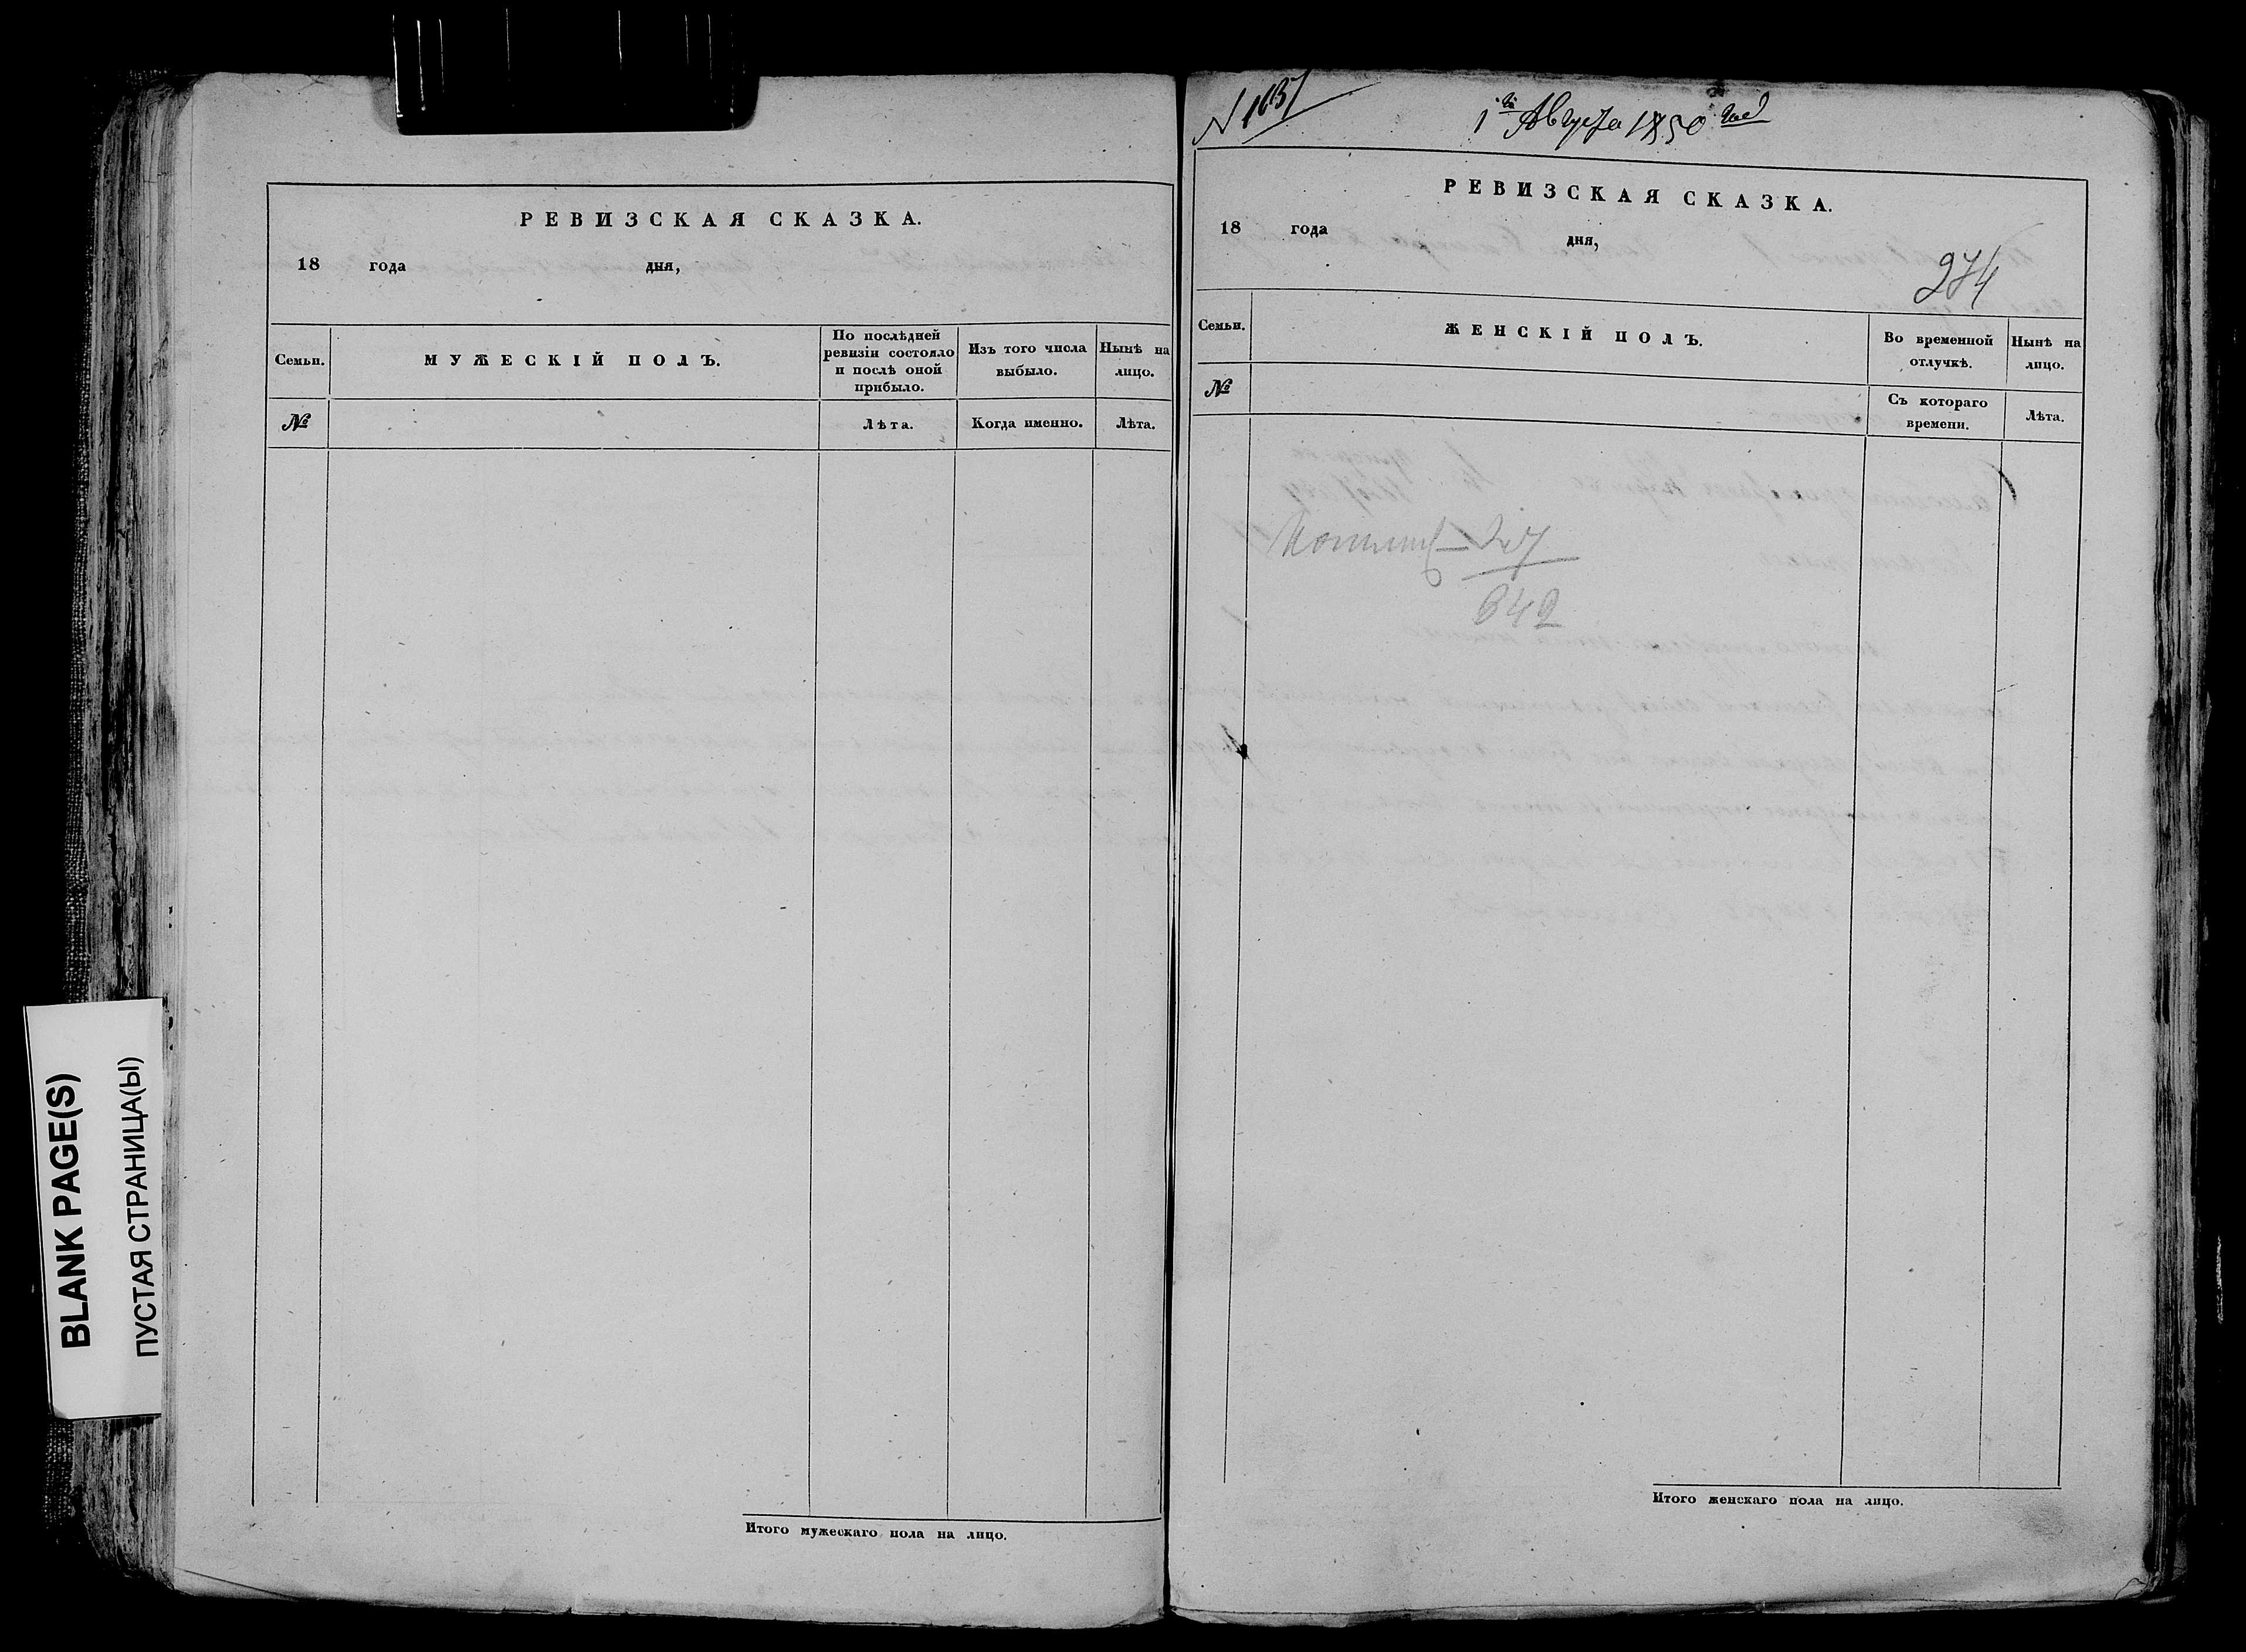 РЕВИЗСКАЯ СКАЗКА.
18 года дня,
Семьи. МУЖЕСКІЙ ПОЛЪ. По послѣдней ревизіи состояло и послѣ оной прибыло. Изъ того числа выбыло. Нынѣ на лицо.
№ Лѣта. Когда именно. Лѣта.
Итого мужескаго пола на лицо.
BLANK PAGE(S)
ПУСТАЯ СТРАНИЦА(Ы)
1й Августа 1850
РЕВИЗСКАЯ СКАЗКА.
18 года дня,
274
Семьи. ЖЕНСКІЙ ПОЛЪ. Во временной отлучкѣ. Нынѣ на лицо.
№ Съ котораго времени. Лѣта.
842
Итого женскаго пола на лицо.